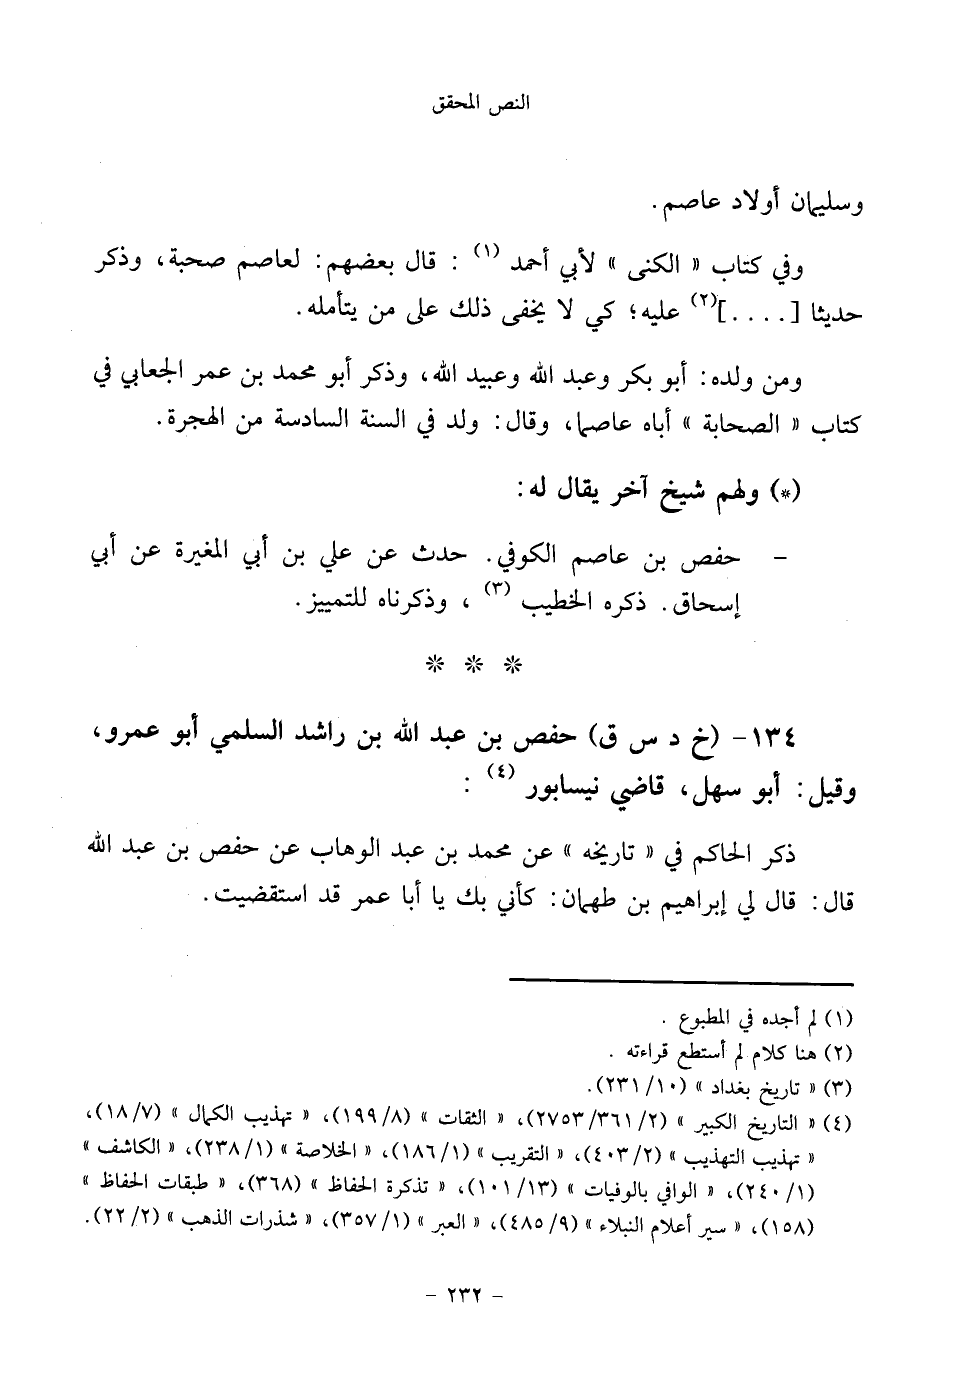 النص المحقق
وسليمان أولاد عاصم.
وفي كتاب « الكنى » لأبي أحمد (١) : قال بعضهم: لعاصم صحبة، وذكر
حديثا [....](٢) عليه؛ كي لا يخفى ذلك على من يتأمله.
ومن ولده: أبو بكر وعبد الله وعبيد الله، وذكر أبو محمد بن عمر الجعابي في
كتاب « الصحابة » أباه عاصما، وقال: ولد في السنة السادسة من الهجرة.
(*) ولهم شيخ آخر يقال له:
- حفص بن عاصم الكوفي. حدث عن علي بن أبي المغيرة عن أبي
إسحاق. ذكره الخطيب (٣) ، وذكرناه للتمييز.
* * *
١٣٤- (خ د س ق) حفص بن عبد الله بن راشد السلمي أبو عمرو،
وقيل: أبو سهل، قاضي نيسابور (٤) :
ذكر الحاكم في « تاريخه » عن محمد بن عبد الوهاب عن حفص بن عبد الله
قال: قال لي إبراهيم بن طهمان: كأني بك يا أبا عمر قد استقضيت.
(١) لم أجده في المطبوع .
(٢) هنا كلام لم أستطع قراءته .
(٣) « تاريخ بغداد » (١٠/ ٢٣١).
(٤) « التاريخ الكبير » (٢/ ٣٦١/ ٢٧٥٣)، « الثقات » (٨/ ١٩٩)، « تهذيب الكمال » (٧/ ١٨)،
« تهذيب التهذيب » (٢/ ٤٠٣)، « التقريب » (١/ ١٨٦)، « الخلاصة » (١/ ٢٣٨)، « الكاشف »
(١/ ٢٤٠)، « الوافي بالوفيات » (١٣/ ١٠١)، « تذكرة الحفاظ » (٣٦٨)، « طبقات الحفاظ »
(١٥٨)، « سير أعلام النبلاء » (٩/ ٤٨٥)، « العبر » (١/ ٣٥٧)، « شذرات الذهب » (٢/ ٢٢).
- ٢٣٢ -